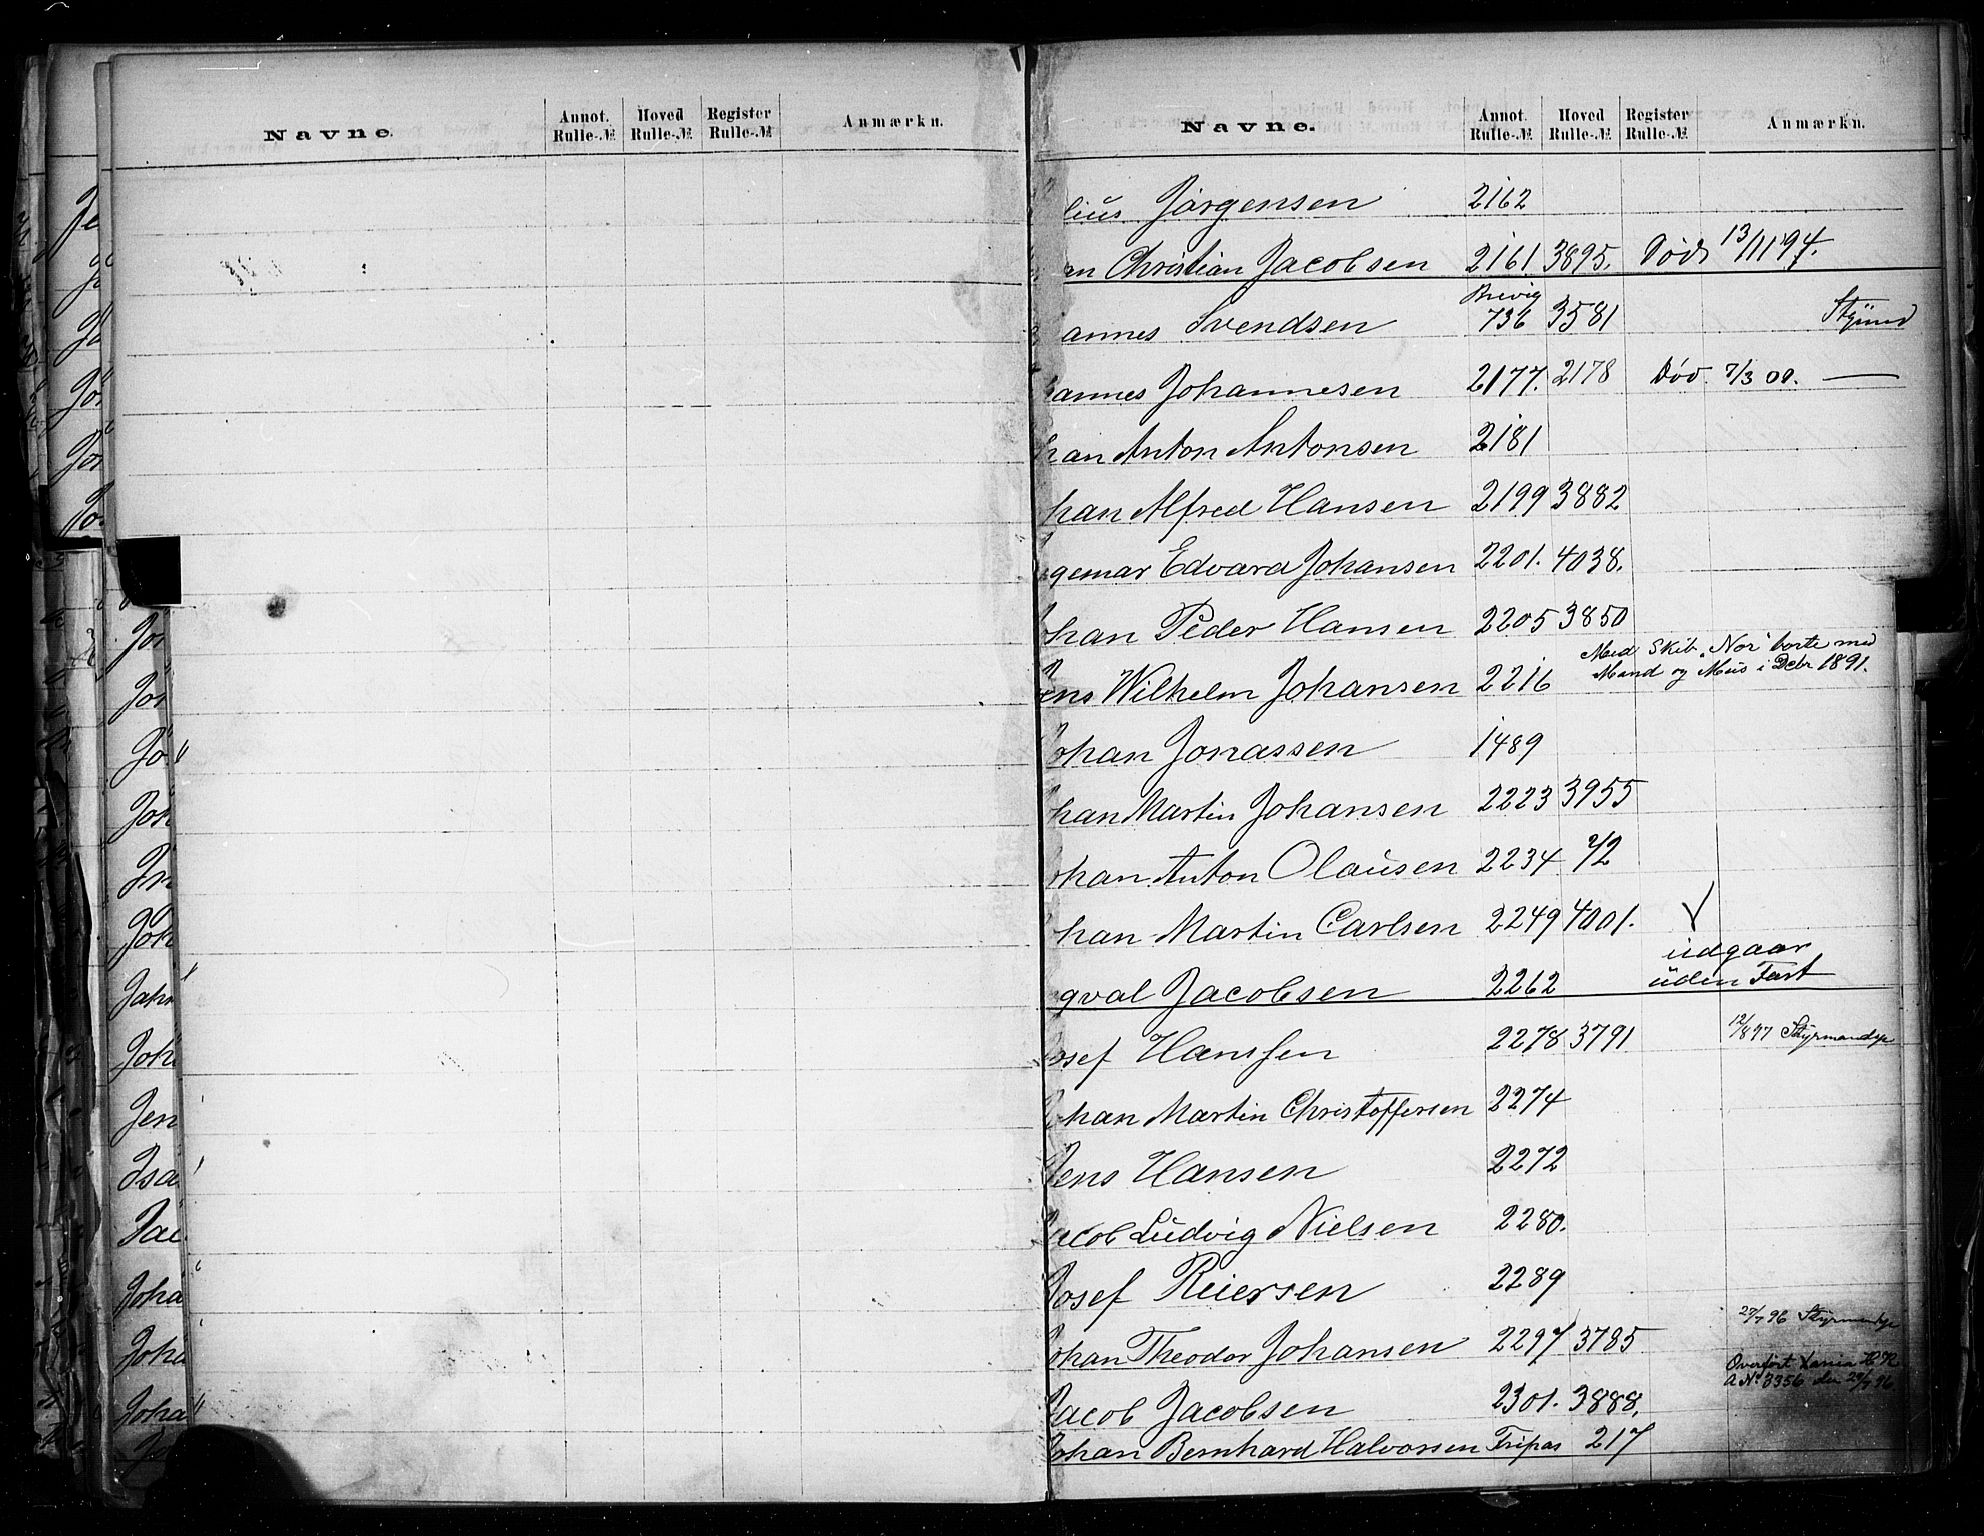 Navne. Annot. Rulle-№ Hoved Rulle-№ Register Rulle-№ Anmærkn.
Navne. Annot. Rulle-№ Hoved Rulle-№ Register Rulle-№ Anmærkn.
lius Jörgensen 2162
an Christian Jacobsen 2161 3895. Död 13/11 94.
Brevig
annes Svendsen 736 3581 Styrmd
annes Johannesen 2177. 2178 Död 7/3 00. —
han Anton Antonsen 2181
han Alfred Hansen 2199 3882
gemar Edvard Johansen 2201. 4038.
ohan Peder Hansen 2205 3850
Med Skib „Nor“ borte med
Mand og Mus i Decbr 1891.
ens Wilhelm Johansen 2216
ohan Jonassen 1489
han Martin Johansen 2223 3955
ohan Anton Olausen 2234
han Martin Carlsen 2249 4001.
udgaar
gval Jacobsen 2262 uden Fart
osef Hanssen 2278 3791 12/8 97 Styrmandsp
ohan Martin Christoffersen 2274
Jens Hansen 2272
Jacob Ludvig Nielsen 2280.
Josef Reiersen 2289
27/7 96 Styrmandsp
Johan Theodor Johansen 2297 3785
Overfört
A No 3356 den 29/7 96
Jacob Jacobsen 2301. 3888.
Johan Bernhard Halvorsen Fripas 217
Jör
Jor
Jor
Jor
Jö
Joh
Joh
Jahn
Joh
Jen
Isa
Joha
Joha
Joha